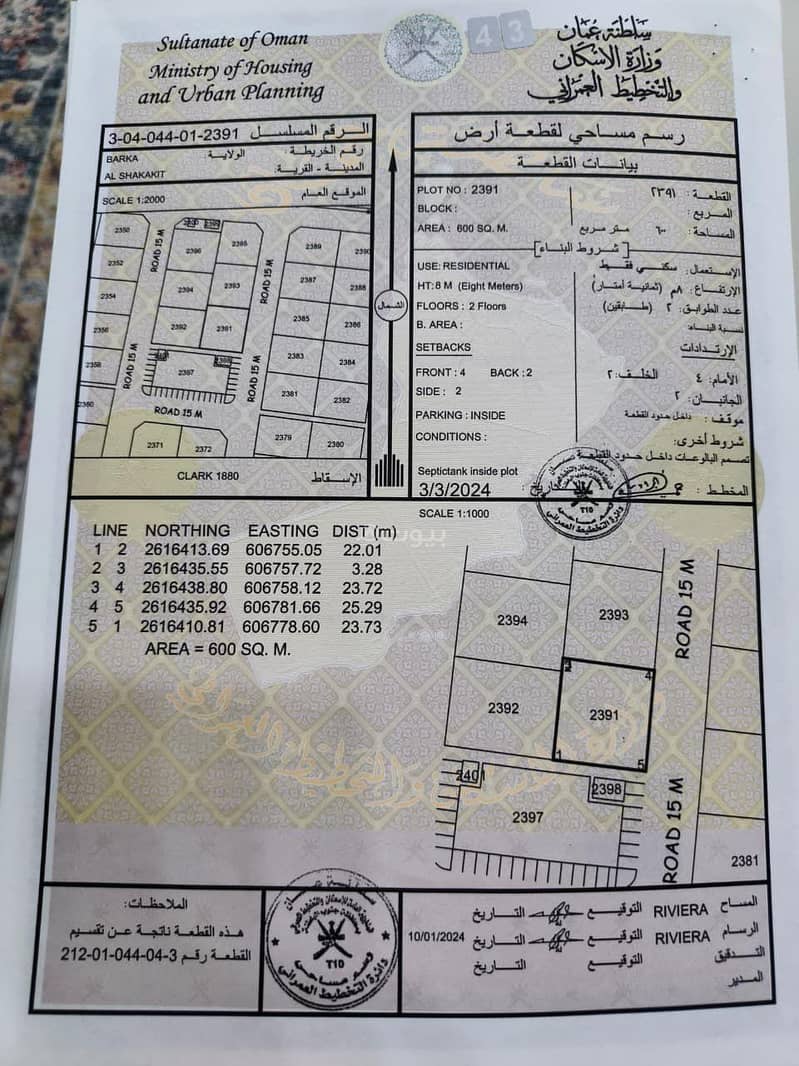 Sultanate of Oman
Ministry of Housing
and Urban Planning
43
سلطنة عمان
وزارة الاسكان
والتخطيط العمراني
3-04-044-01-2391 الرقم المسلسل
رقم الخريطة : الولاية :
BARKA
المدينة - القرية:
AL SHAKAKIT
SCALE 1:2000 الموقع العام
2350
2352
2354
2356
2358
2360
2396
2395
2394
2393
2392
2391
2397
2389
2390
2387
2388
2385
2386
2383
2384
2381
2382
2371
2372
2379
2380
ROAD 15 M
ROAD 15 M
ROAD 15 M
ROAD 15 M
ROAD 15 M
CLARK 1880 الإسقاط
الشمال
رسم مساحي لقطعة أرض
بيانات القطعة :
PLOT NO : 2391
القطعة : ٢٣٩١
BLOCK :
المربع :
AREA : 600 SQ. M.
المساحة : ٦٠٠ متر مربع
شروط البناء
USE: RESIDENTIAL
الإستعمال: سكني فقط
HT: 8 M (Eight Meters)
الإرتفاع : ٨م (ثمانية أمتار)
FLOORS : 2 Floors
عدد الطوابق: ٢ (طابقين)
B. AREA :
نسبة البناء:
SETBACKS
الإرتدادات
FRONT : 4 BACK : 2
الأمام: ٤ الخلف: ٢
SIDE : 2
الجانبان: ٢
PARKING : INSIDE
موقف : داخل حدود القطعة
CONDITIONS :
شروط أخرى:
تصمم البالوعات داخل حدود القطعة
Septictank inside plot
3/3/2024
التاريخ :
المخطط :
SCALE 1:1000
LINE NORTHING EASTING DIST (m)
1 2 2616413.69 606755.05 22.01
2 3 2616435.55 606757.72 3.28
3 4 2616438.80 606758.12 23.72
4 5 2616435.92 606781.66 25.29
5 1 2616410.81 606778.60 23.73
AREA = 600 SQ. M.
بيوت
2394
2393
2392
2391
1
4
5
2401
2398
2397
2381
ROAD 15 M
ROAD 15 M
الملاحظات:
هذه القطعة ناتجة عن تقسيم
القطعة رقم 3-04-044-01-212
دائرة التخطيط العمراني
المساح RIVIERA التوقيع التاريخ
الرسام RIVIERA التوقيع التاريخ 10/01/2024
التدقيق التوقيع التاريخ
المدير